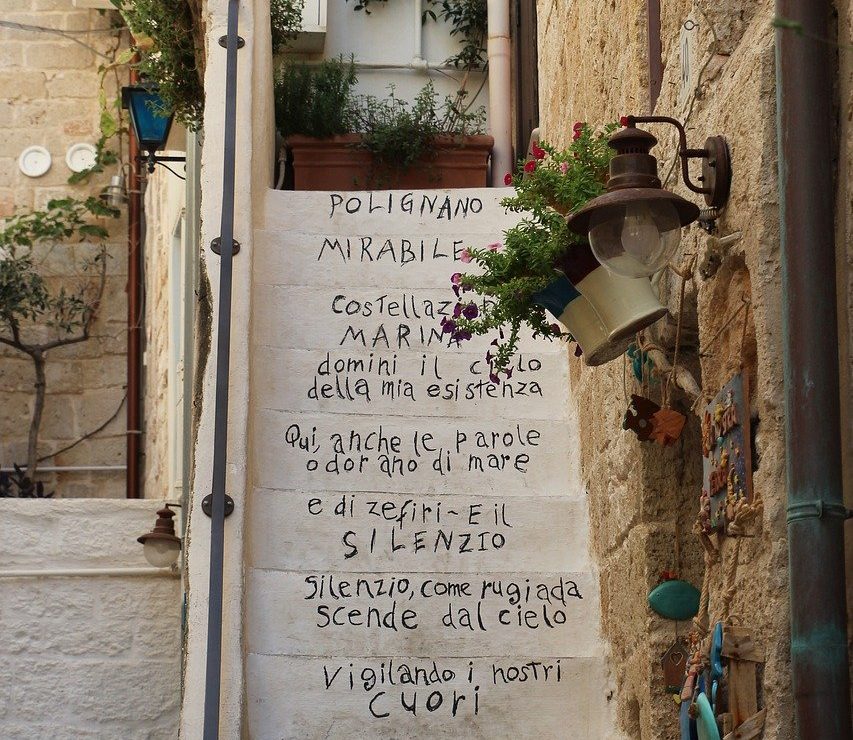 POLIGNANO
MIRABILE
Costellaz
MARINA
domini il cielo
della mia esistenza
Qui, anche le parole
odorano di mare
e di zefiri - E il
SILENZIO
Silenzio, come rugiada
scende dal cielo
Vigilando i nostri
cuori